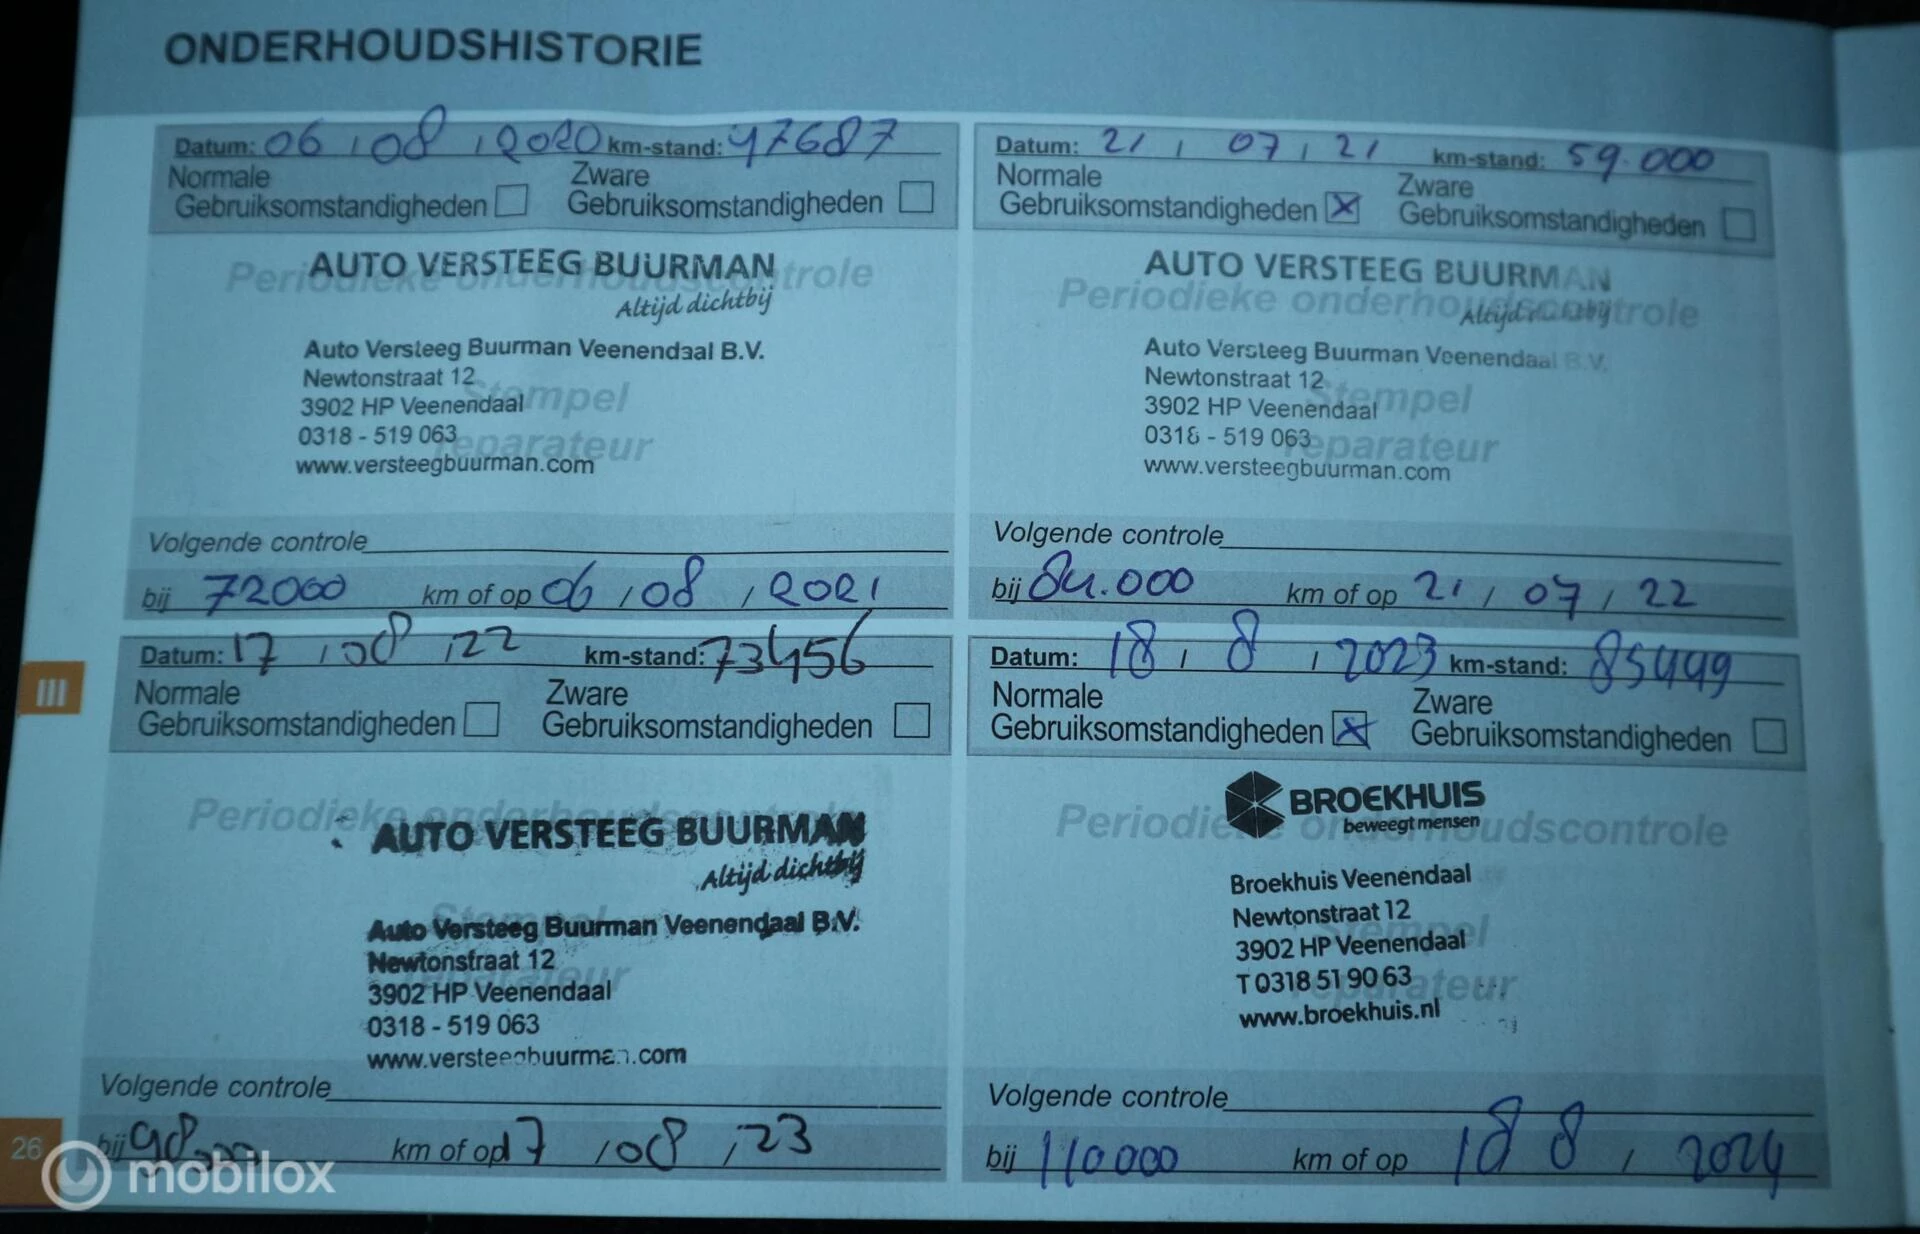 ONDERHOUDSHISTORIE
Datum: 06 / 08 / 2020 km-stand: 47687
Normale Gebruiksomstandigheden
Zware Gebruiksomstandigheden
Periodieke onderhoudscontrole
AUTO VERSTEEG BUURMAN
Altijd dichtbij
Auto Versteeg Buurman Veenendaal B.V.
Newtonstraat 12
Stempel
3902 HP Veenendaal
0318 - 519 063
reparateur
www.versteegbuurman.com
Volgende controle
bij 72000 km of op 06 / 08 / 2021
Datum: 21 / 07 / 21 km-stand: 59.000
Normale Gebruiksomstandigheden X
Zware Gebruiksomstandigheden
AUTO VERSTEEG BUURMAN
Periodieke onderhoudscontrole
Altijd dichtbij
Auto Versteeg Buurman Veenendaal B.V.
Newtonstraat 12
Stempel
3902 HP Veenendaal
0318 - 519 063
reparateur
www.versteegbuurman.com
Volgende controle
bij 84.000 km of op 21 / 07 / 22
III
Datum: 17 / 08 / 22 km-stand: 73456
Normale Gebruiksomstandigheden
Zware Gebruiksomstandigheden
Periodieke onderhoudscontrole
AUTO VERSTEEG BUURMAN
Altijd dichtbij
Stempel
Auto Versteeg Buurman Veenendaal B.V.
Newtonstraat 12
reparateur
3902 HP Veenendaal
0318 - 519 063
www.versteegbuurman.com
Volgende controle
bij 98.000 km of op 17 / 08 / 23
Datum: 18 / 8 / 2023 km-stand: 85499
Normale Gebruiksomstandigheden X
Zware Gebruiksomstandigheden
BROEKHUIS
beweegt mensen
Periodieke onderhoudscontrole
Broekhuis Veenendaal
Newtonstraat 12
Stempel
3902 HP Veenendaal
T 0318 51 90 63
reparateur
www.broekhuis.nl
Volgende controle
bij 110000 km of op 18 8 / 2024
26
mobilox